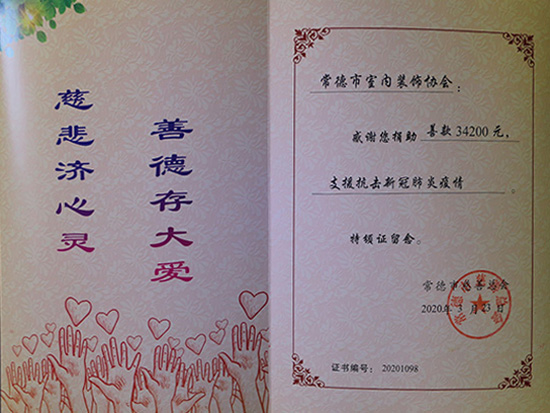 善德存大爱
慈悲济心灵
常德市室内装饰协会：
感谢您捐助 善款 34200 元，
支援抗击新冠肺炎疫情 。
特颁证留念。
常德市慈善总会
2020年 3 月 23 日
证书编号： 20201098